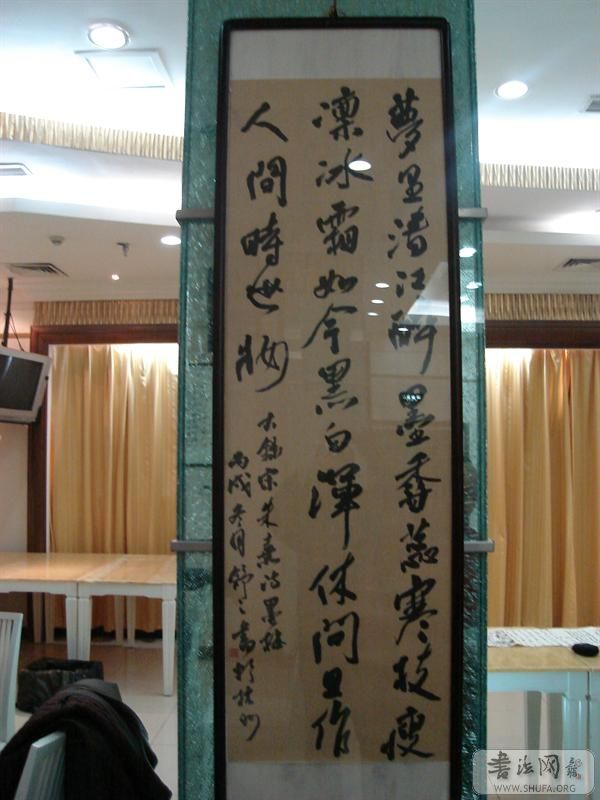 夢里清江醉墨香蕊寒枝瘦
凛冰霜如今黑白渾休問且作
人間時世妝
右錄宋朱熹詩墨梅
丙戌冬月書於杭州
书法网
WWW.SHUFA.ORG